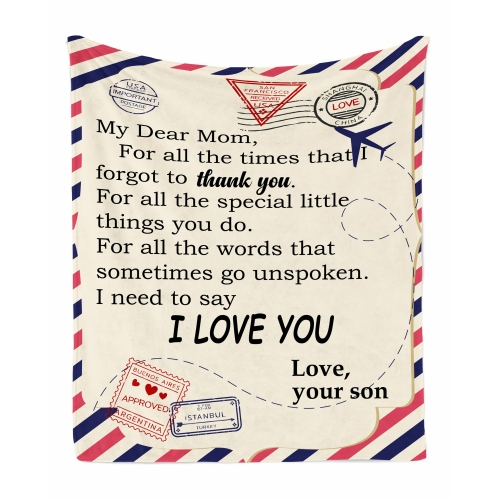 USA
IMPORTANT
POSTAGE
SAN
FRANCISCO
RECEIVED
USA
SHANGHAI
LOVE
CHINA
My Dear Mom,
For all the times that I
forgot to thank you.
For all the special little
things you do.
For all the words that
sometimes go unspoken.
I need to say
I LOVE YOU
Love,
your son
BUENOS AIRES
APPROVED
ARGENTINA
ISTANBUL
TURKEY